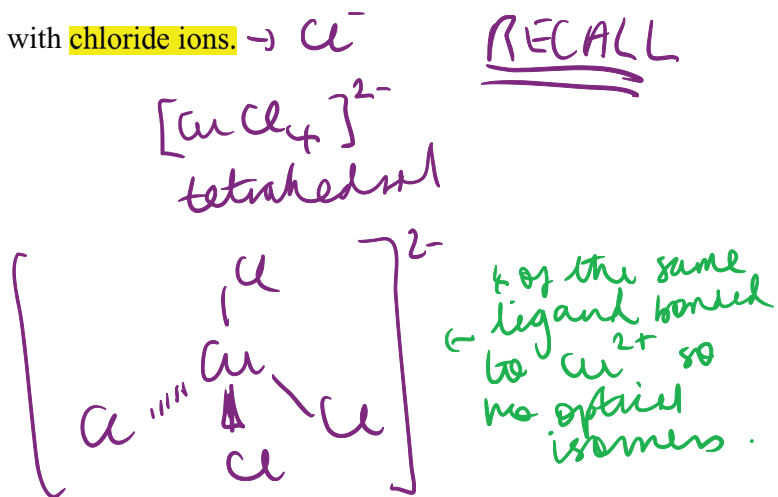 with chloride ions. → Cl⁻
RECALL
[CuCl₄]²⁻
tetrahedral
[
Cl
]²⁻
Cu
Cl
Cl
Cl
← 4 of the same
ligand bonded
to Cu²⁺ so
no optical
isomers.